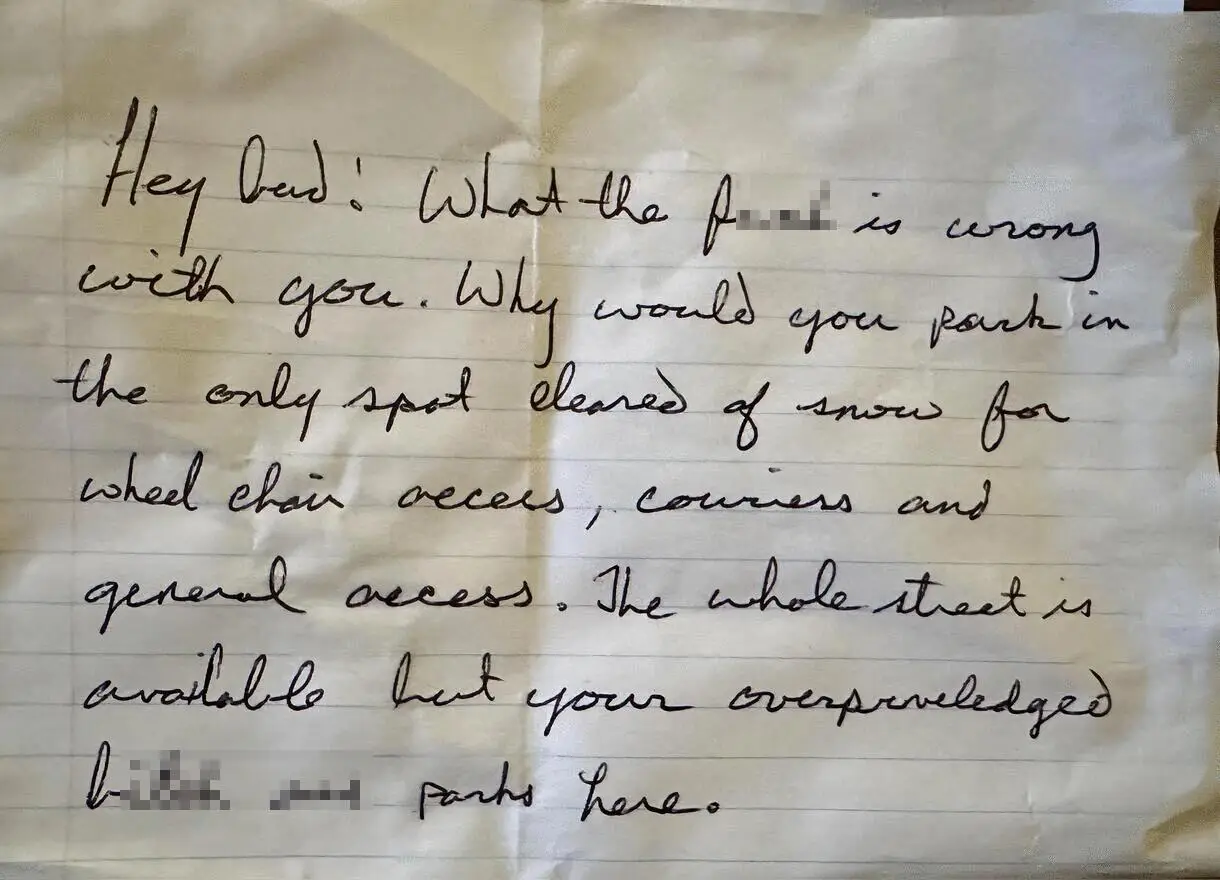 Hey bud! What the is wrong
with you. Why would you park in
the only spot cleared of snow for
wheel chair access, couriers and
general access. The whole street is
available but your overpriveledged
parks here.